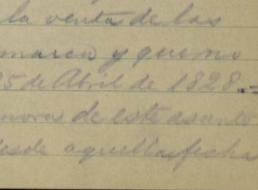 la venta de las
marca y que no
25 de Abril de 1828.-
noras de este asunto
desde aquella fecha